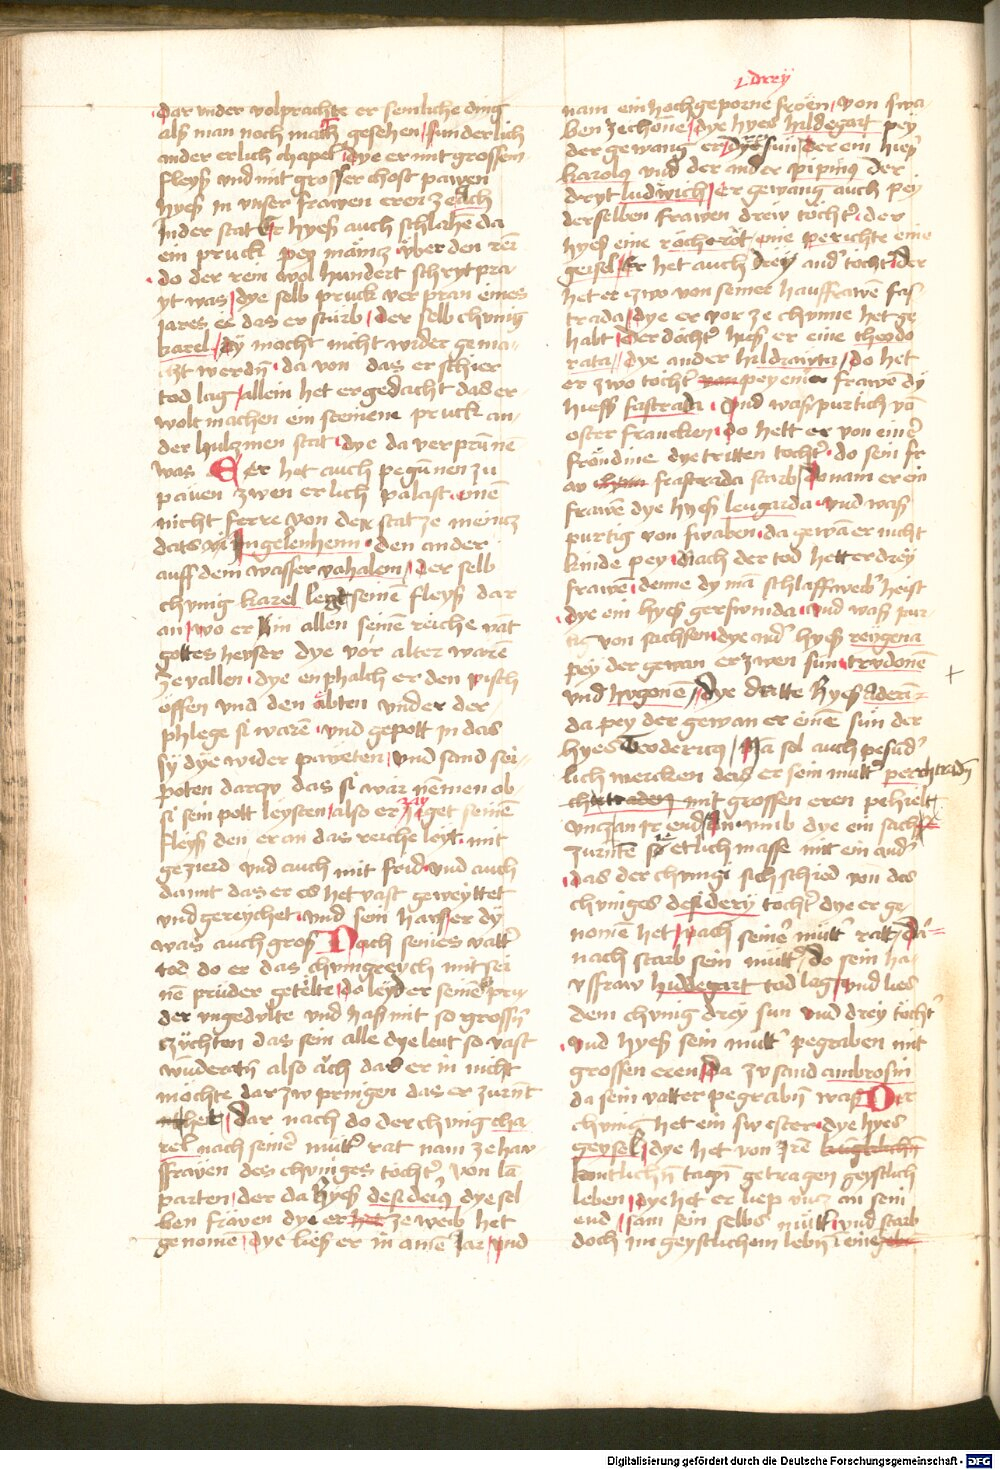 dar vnder volprachte er semliche ding
alß man noch mack gesehen / sunderlich
ander erlich chapel / dye er mit grossem
fleyß vnd mit grosser chost pawen
hyeß in vnser frawen eren ze ach
In der stat Er hyeß auch schlahē da
ein pruck pey mäincz vber den rei
do der rein wol hundert schryt pra-
yt was / dye selb pruck verpran eines
iares ee das er starb / der selb chunig
karel / Dy mocht nicht wider gema-
czt werdn̄ da von das er schier
tod lag / allein het er gedacht das er
wolt machen ein steinene pruck an
der hulczinen stat dye da verprūnē
was Er het auch pegūnen zu
pauen zwen erlich palast einē
nicht ferre von der stat ze meincz
dacz Ingelenheim den ander
auff dem wasser vahalem / der selb
chunig karel legt seinen fleyß dar
an / wo er in allen seinē reiche vāt
gottes heyser dye vor alter warē
ze vallen dye enphalch er den pisch
offen vnd den äbten vnder der
phlege si warē vnd gepott in das
sy dye wider paweten / vnd sand sei
poten darzu das si war nēmen ob
si sein pott leysten / also er zayget seinē
fleyß den er an das reiche leyt mit
gezierd vnd auch mit frid vnd auch
damit das er es het vast geweyttet
vnd gereychet vnd sein hawser dy
was auch groß Nach seines vatt'
tod do er das chungreych mit sei
nē prüder geteilt / do leyder seinē pru
der vngedulte vnd haß mit so grossn̄
czuchten das sein alle dye leut so vast
wūdertn̄ also ach das er in nicht
mochte dar zw pringen das er zurnt
het / Dar nach do der chunig cha
rel nach seiner mutt' rat nam ze haw
ffrawen des chuniges tocht' von lā
parten / der da hyeß desideriq dye sel
ben frawen dye er het ze weib het
genomē / Dye ließ er in ainē Iar / vnd
drey
nam ein hochgeporne froen / von swa-
ben ze chone / dye hyes hildegart pey
der gewang er drey sun / Der ein hieß
karolq vnd der ander pipinq der
dryt ludwich / Er gewang auch pey
derselben frawen drew tocht' der
hyeß eine rachrot eine perichte eine
geisel / Er het auch drey and' tocht' Der
het er zwo von seiner hauffrawē fas
trada / dye er vor ze chonne het ge
habt / Der docht' hieß er eine theodo
rata / dye ander hildrawta / do het
er zwo tocht' von pey einer frawē dy
hieß fastrada / vnd waß purtich vō
oster francken / do hett er von einer
frondine dye tritten tocht' do sein fr
aw fastrada starb / Do nam er ein
frawē dye hyeß leugarda vnd waß
purtig von swaben da gewā er nicht
kinde pey / Nach der tod hett er drey
frawē / denne dy mā schlaffweib heist
dye ein hyeß gerswinda vnd waß pur
tig von sachsen dye and' hyeß reygena
pey der gewan er zwen sun trudonē
vnd hugonē / Dye dritte hyeß aderin
da pey der gewan er einē sun der
hyes Teodericq / Mā sol auch pesūd'
lich mercken das er sein mutt' perchtradn̄
chtraden mit grossen eren pehielt
vncz an ir end / An vmb dye ein sach
zurntē sy etlich masse mit ein and'
das der chunig sich schied von des
chuniges desidery tocht' dye er ge
nome het / nach seiner mutt' ratt / Da
nach starb sein mutt' do sein ha
vsfraw hiddegart tod lag / vnd lies
dem chunig drey sun vnd drey tocht'
vnd hyeß sein mutt' pegraben mit
grossen eren / Da zu sand ambrosin
da sein vatter pegrabn̄ waß Der
chunig het ein swester dye hyes
geysel / dye het von Irē kuniglichn̄
kintlichn̄ tagn̄ getragen geystlich
leben / dye het er liep vncz an sein
end / sam sein selbs mutt' vnd starb
doch im geystlichem lebn̄ in eine
Digitalisierung gefördert durch die Deutsche Forschungsgemeinschaft - DFG